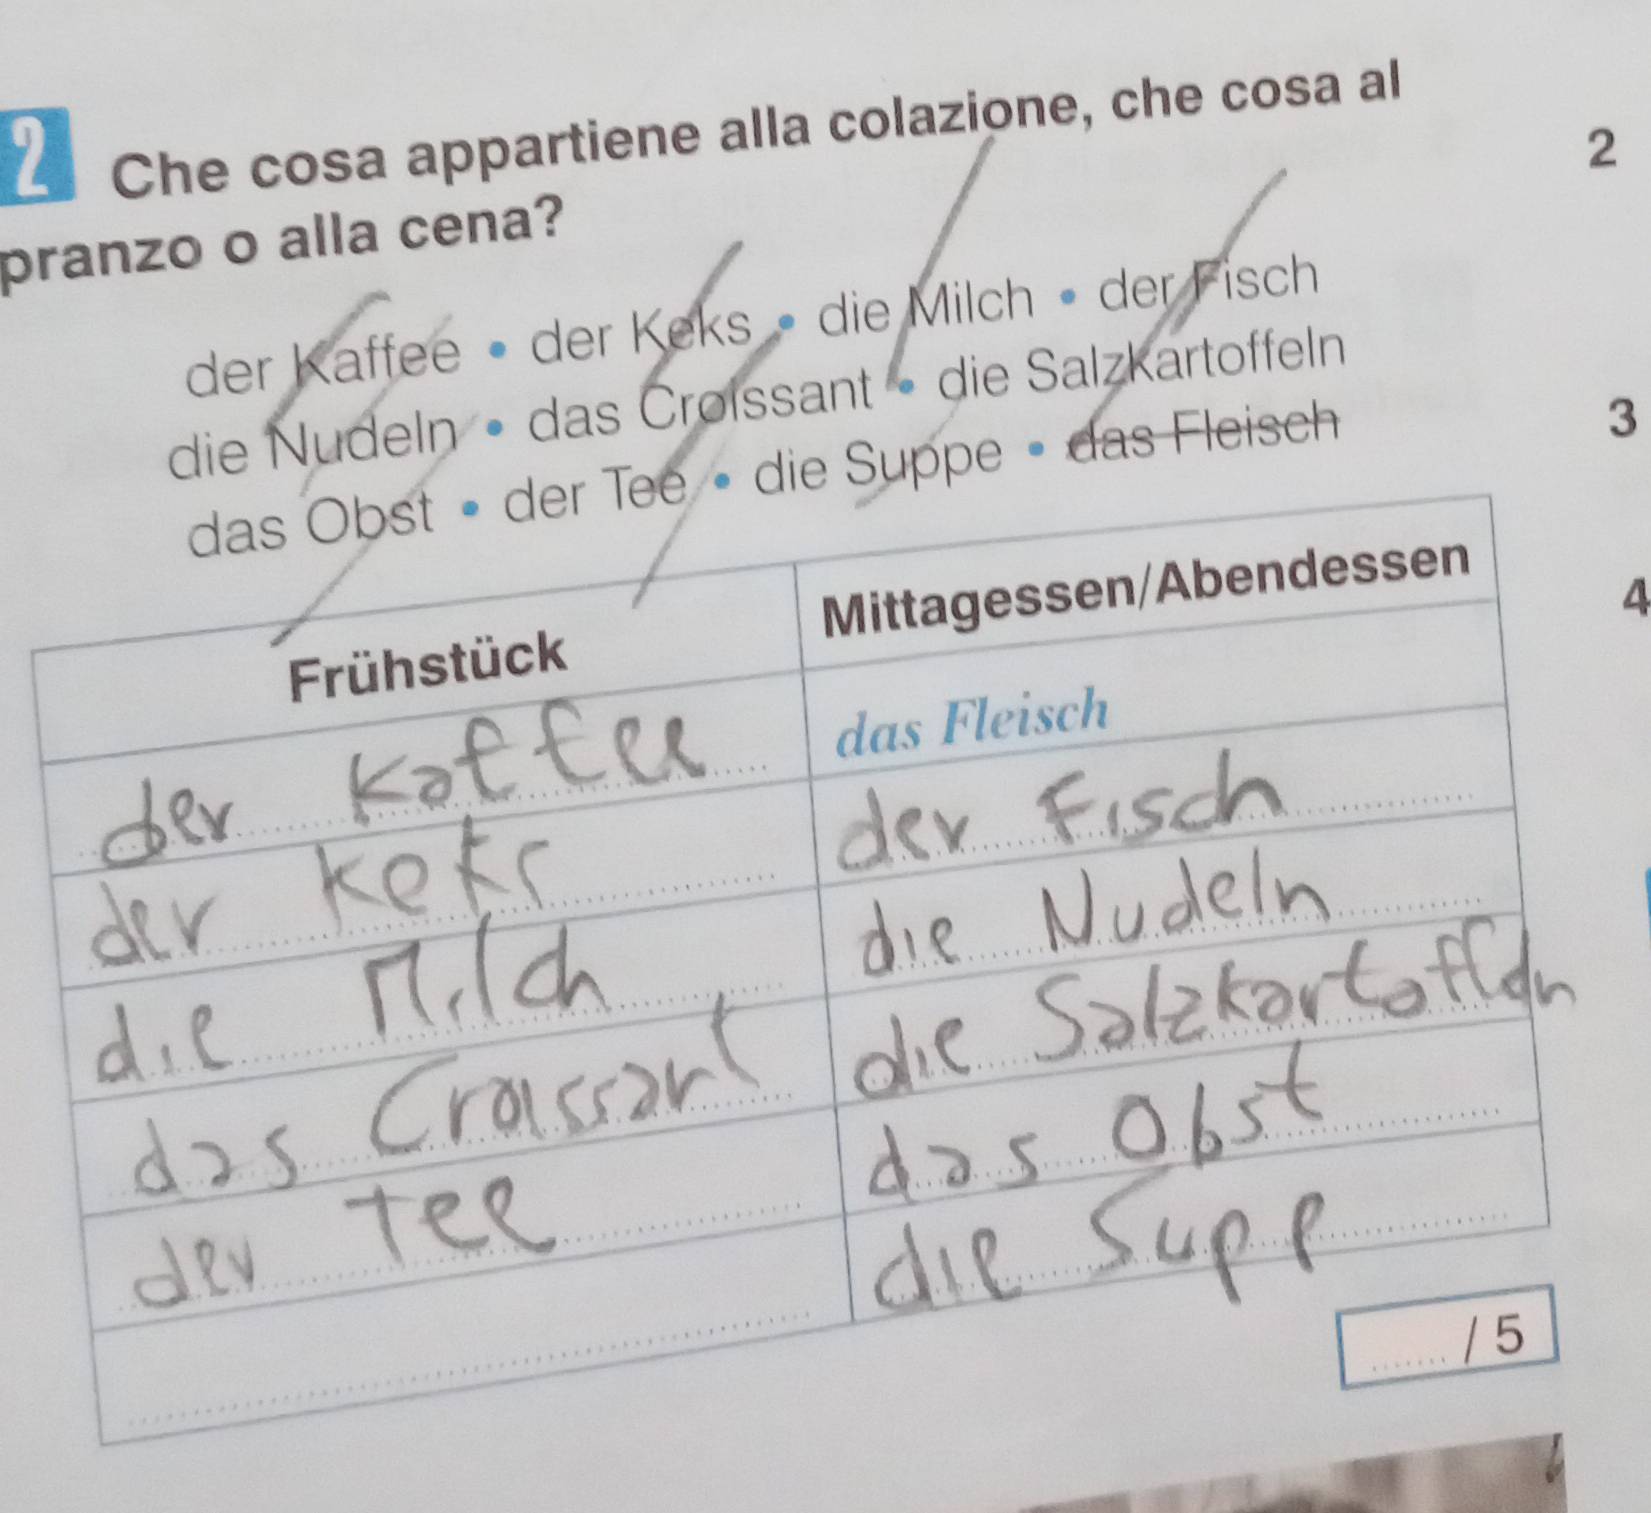 2 Che cosa appartiene alla colazione, che cosa al
pranzo o alla cena?
der Kaffee • der Keks • die Milch • der Fisch
die Nudeln • das Croissant • die Salzkartoffeln
das Obst • der Tee • die Suppe • das Fleisch
Frühstück
Mittagessen/Abendessen
der Kaffee
das Fleisch
der Keks
der Fisch
die Milch
die Nudeln
das Croissant
die Salzkartoffeln
der Tee
das Obst
die Supp
/ 5
2
3
4